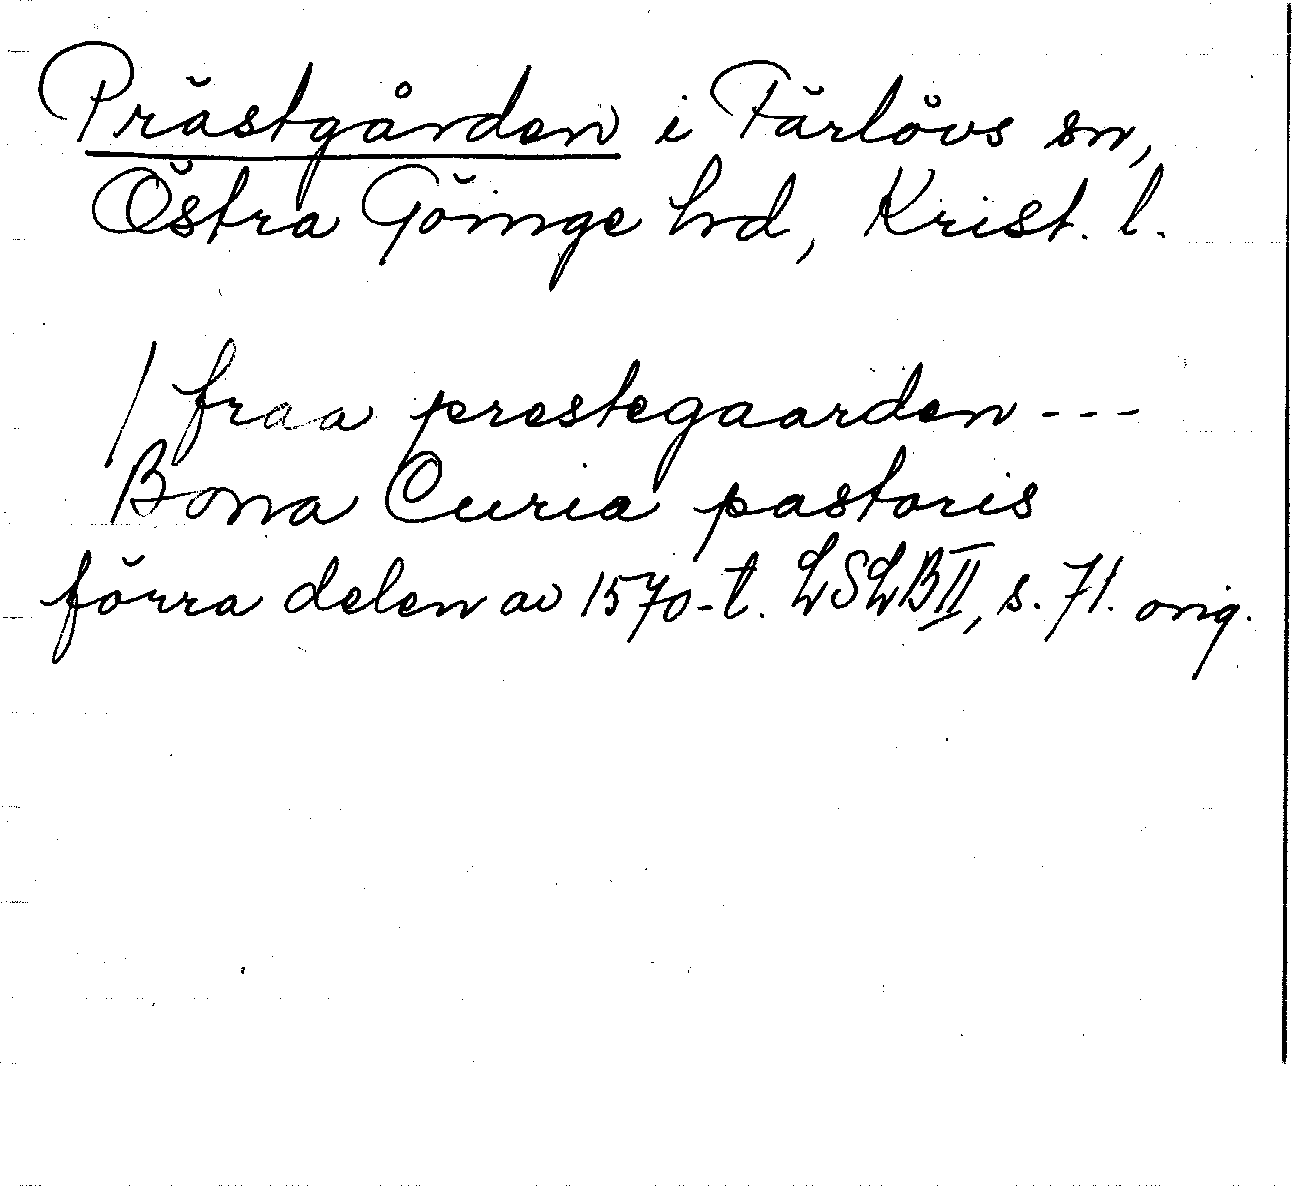 Prästgården i Färlövs sn,
Östra Göinge hd, Krist. l.
/ fraa prestegaarden ---
Bona Curia pastoris
förra delen av 1570-t. LSLB II, s. 71. orig.